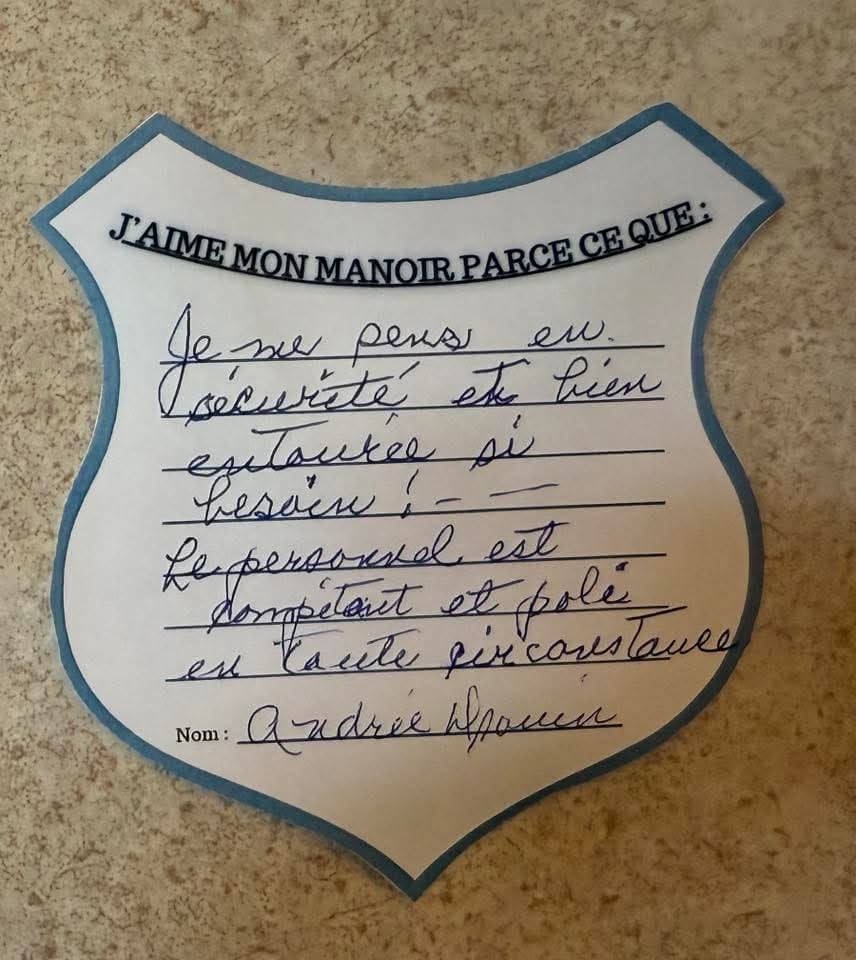 J'AIME MON MANOIR PARCE CE QUE :
Je me sens en
sécurité et bien
entourée si
besoin ! - —
Le personnel est
compétant et poli
en toute circonstance
Nom : Andrée Drouin